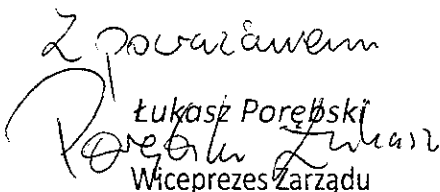 Z poważaniem
Łukasz Porębski
Porębski Łukasz
Wiceprezes Zarządu